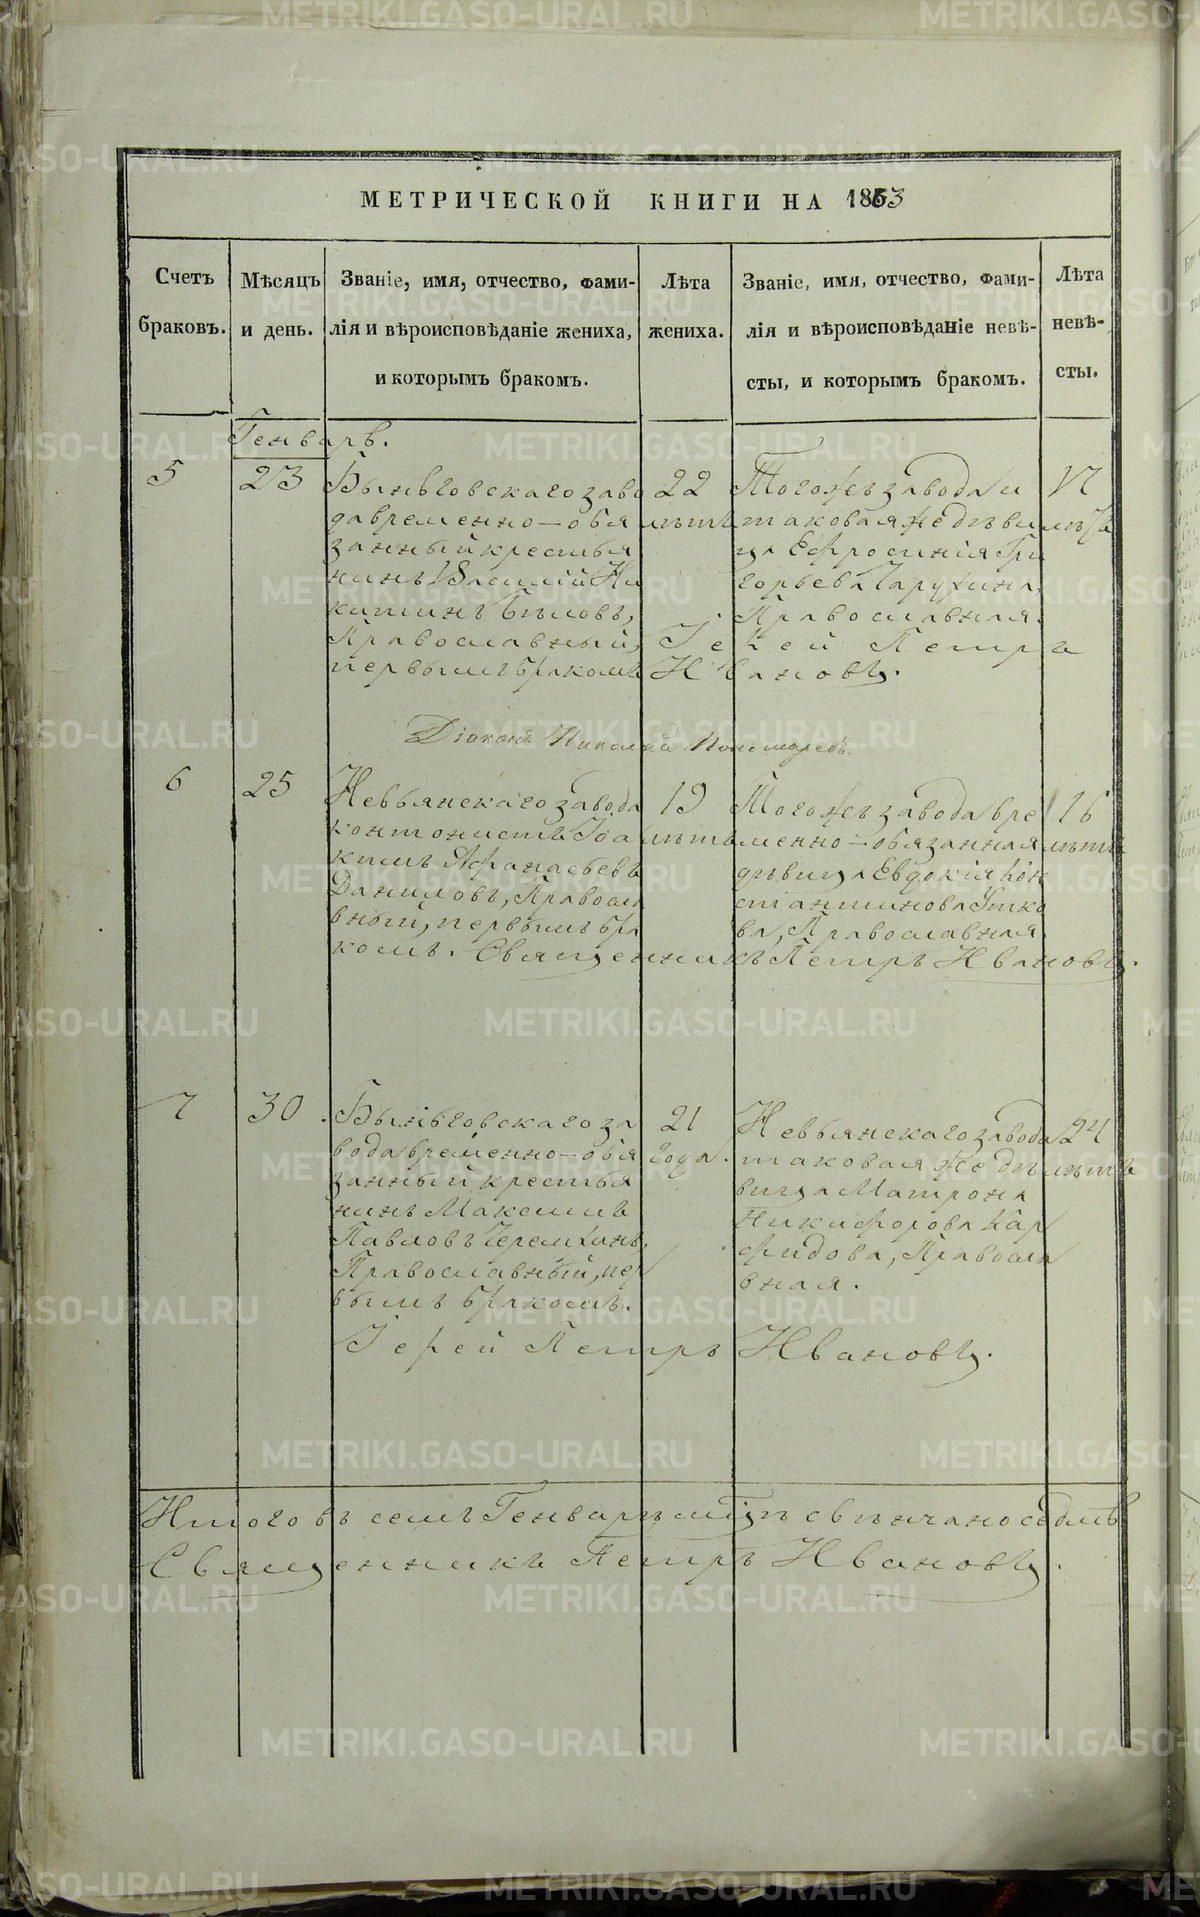 МЕТРИЧЕСКОЙ КНИГИ НА 1863
Счетъ браковъ.
Мѣсяцъ и день.
Званіе, имя, отчество, фами-
лія и вѣроисповѣданіе жениха,
и которымъ бракомъ.
Лѣта жениха.
Званіе, имя, отчество, фами-
лія и вѣроисповѣданіе невѣ-
сты, и которымъ бракомъ.
Лѣта невѣ-
сты.
Генварь.
5
23
Быньговскаго заво
да временно-обя
занный крестья
нинъ Василій Ни
китинъ Бѣловъ,
Православный,
первымъ бракомъ
22
лѣтъ
Тогожъ завода и
таковая же дѣви
ца Ефросинія Гри
горьева Чарухина,
Православная.
17
лѣтъ
Іерей Петръ
Ивановъ.
Діаконъ Николай Пономаревъ.
6
25
Невьянскаго завода
кантонистъ Іоа
кимъ Афанасьевъ
Даниловъ, Правосла
вный, первымъ бра
комъ.
19
лѣтъ
Тогожъ завода вре
менно-обязанная
дѣвица Евдокія Кон
стантинова Утко
ва, Православная.
16
лѣтъ
Священникъ Петръ Ивановъ.
7
30.
Быньговскаго за
вода временно-обя
занный крестья
нинъ Максимъ
Павловъ Черемхинъ,
Православный, пер
вымъ бракомъ.
21
года.
Невьянскаго завода
таковая же дѣ
вица Матрона
Никифорова Кар
фидова, Правосла
вная.
24
лѣтъ
Іерей Петръ Ивановъ.
Итого въ семъ Генварѣ мцѣ свѣнчано седмь
Священникъ Петръ Ивановъ.
METRIKI.GASO-URAL.RU